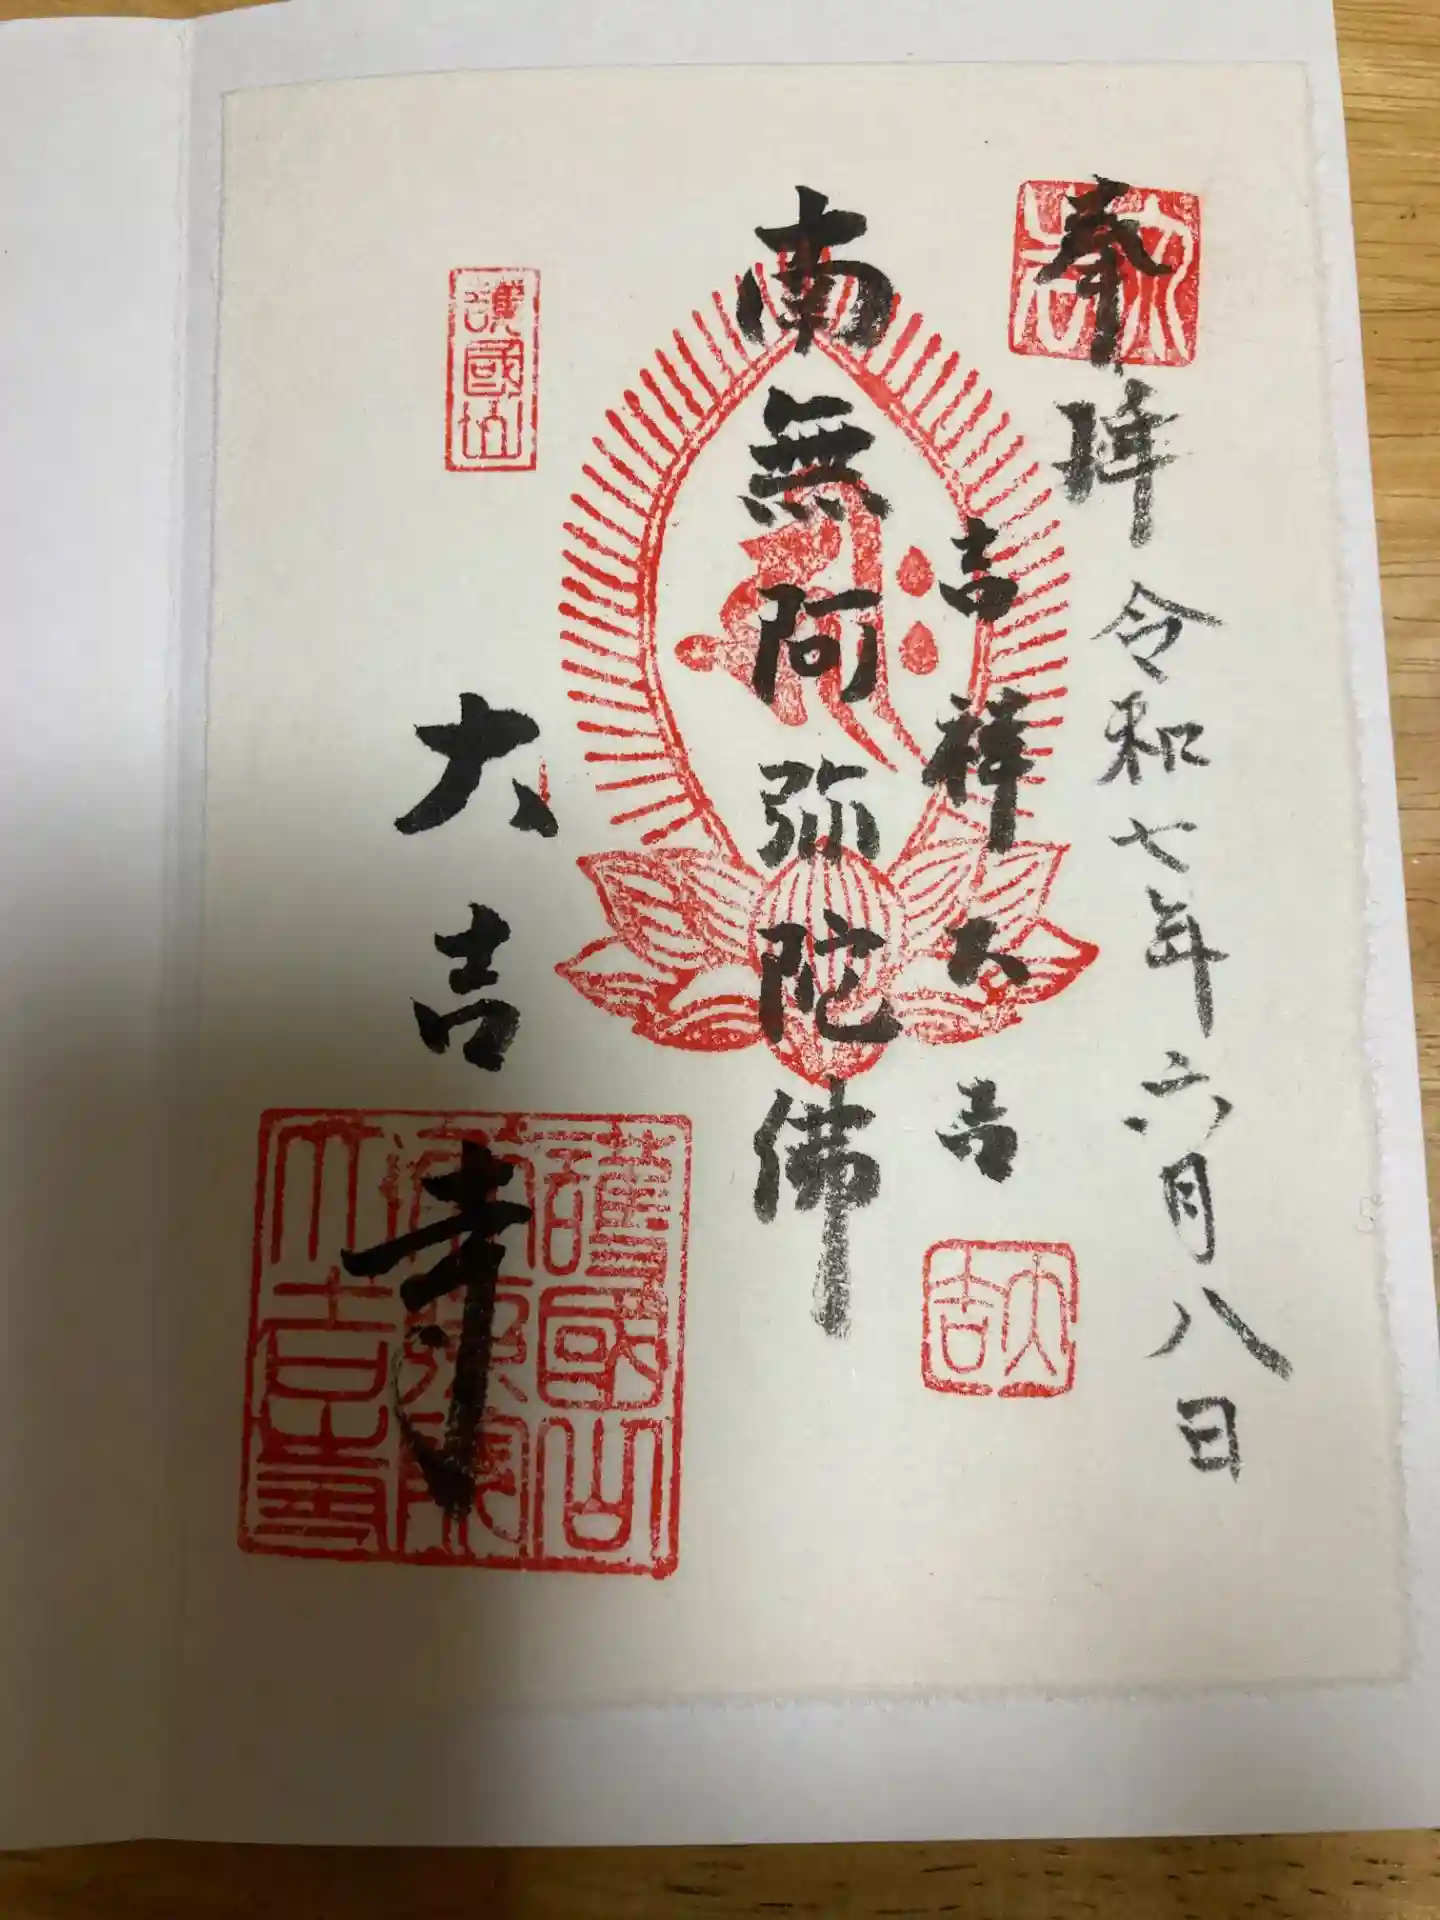 奉拝 令和七年六月八日
吉祥大吉
大吉
南無阿弥陀佛
護國山
大吉寺
護國山
大吉寺